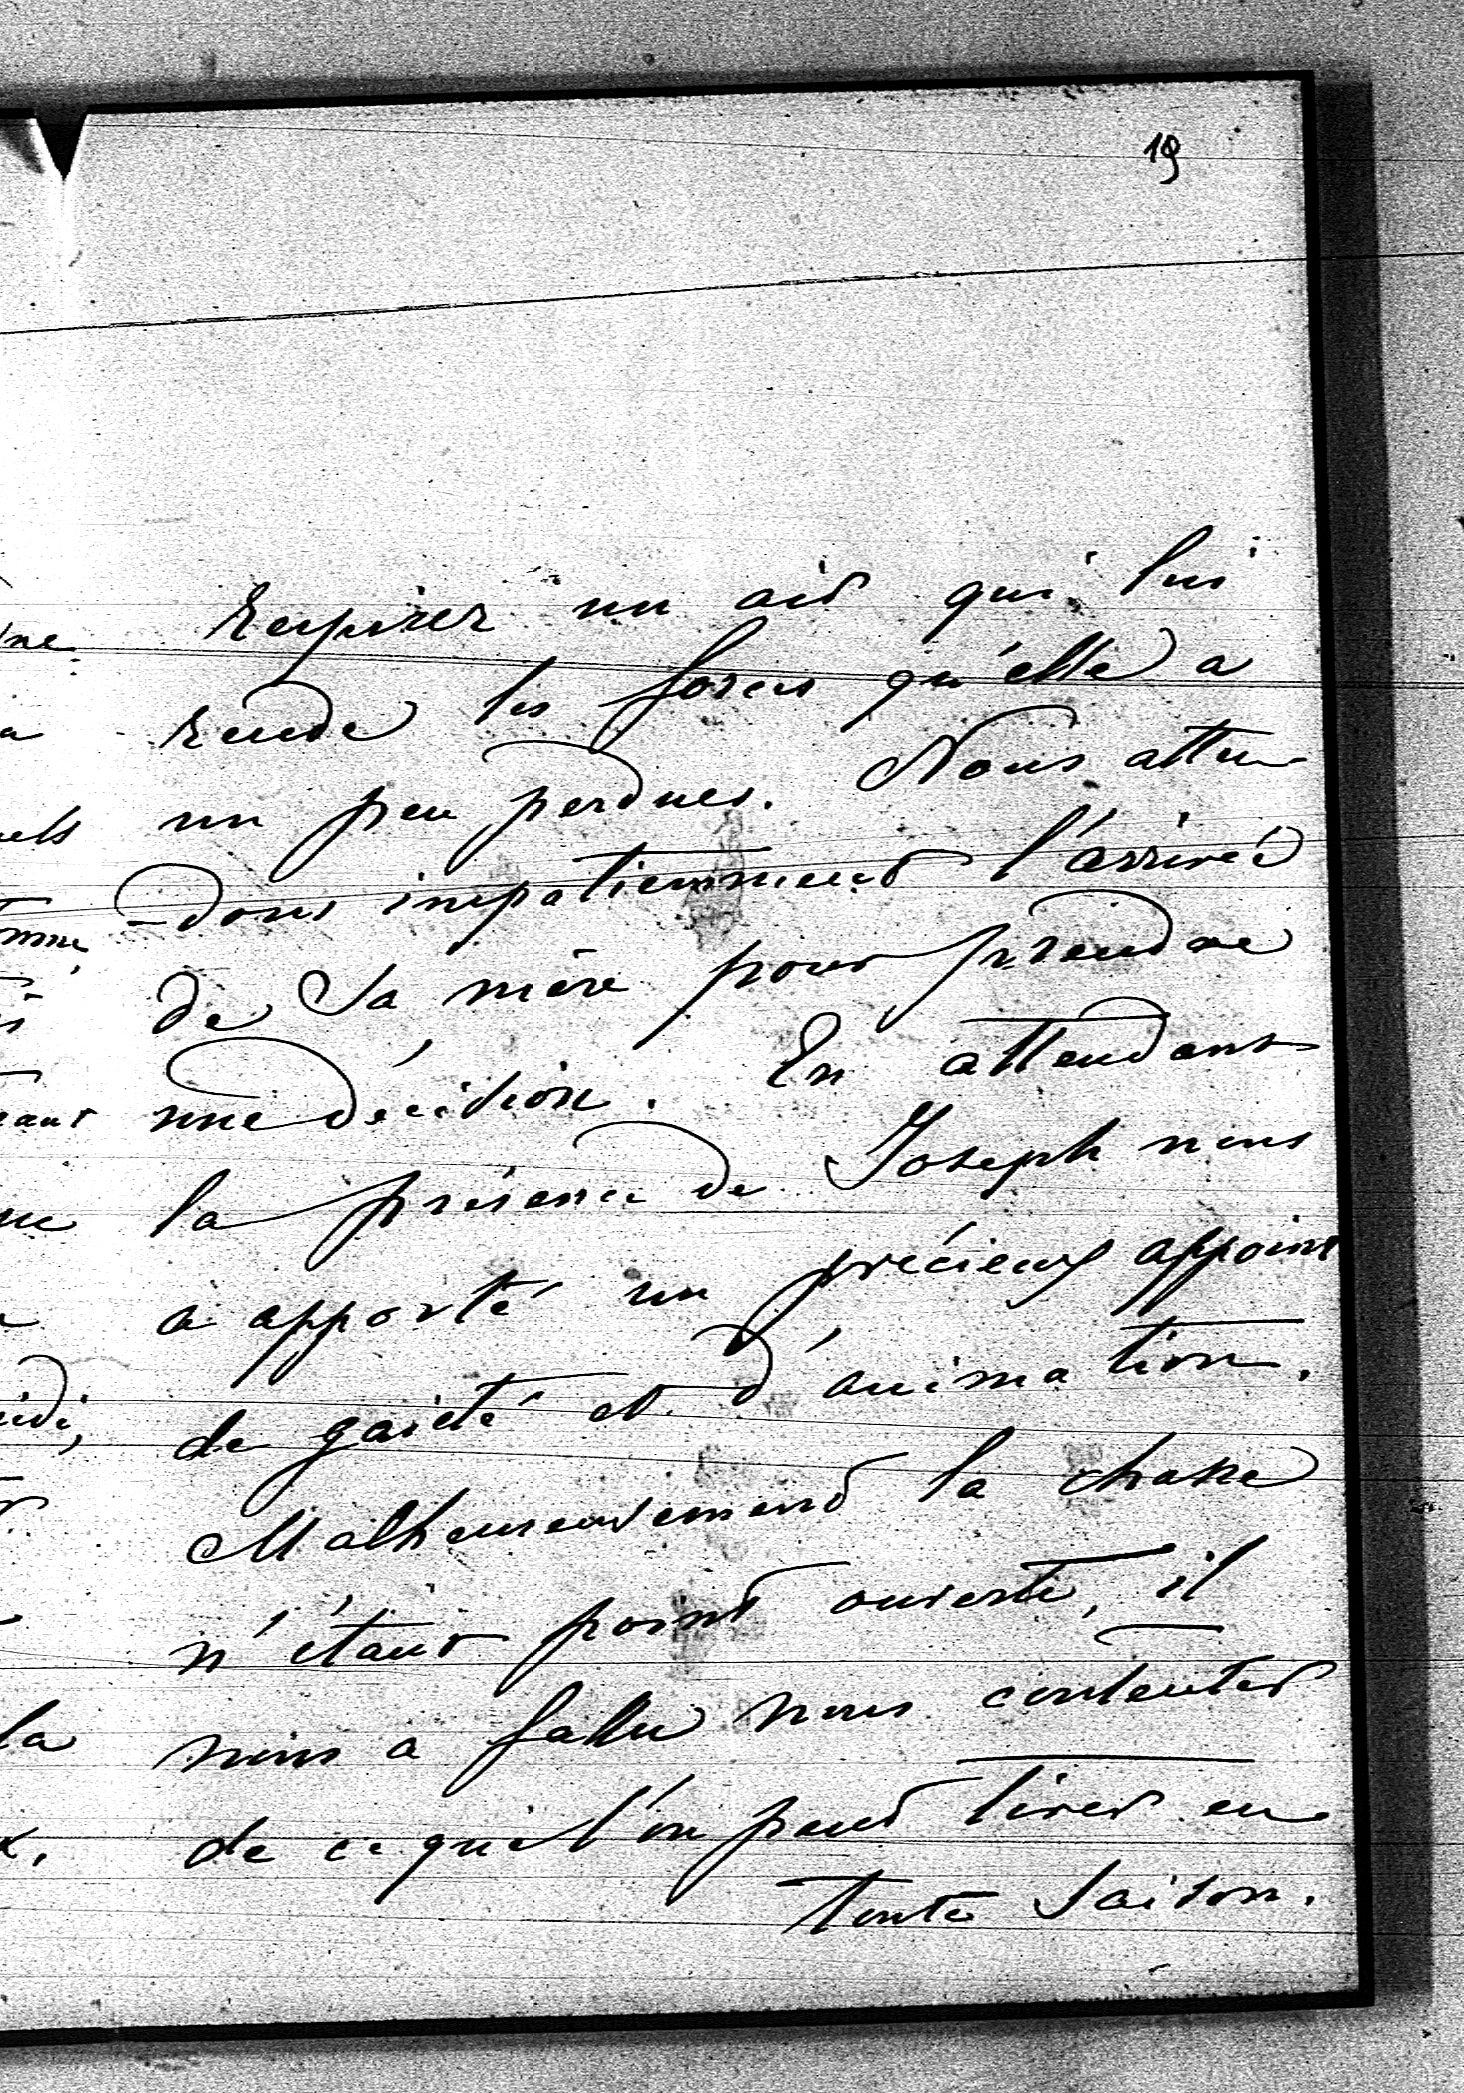 19
respirer un air qui lui
rende les forces qu'elle a
un peu perdues. Nous atten
-dons impatiemment l'arrivée
de sa mère pour prendre
une décision. En attendant
la présence de Joseph nous
a apporté un précieux appoint
de gaieté et d'animation.
Malheureusement la chasse
n'étant point ouverte, il
nous a fallu nous contenter
de ce que l'on peut tirer en
toute saison.